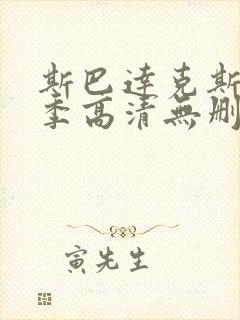 斯巴達克斯
季高清無刪
寅先生